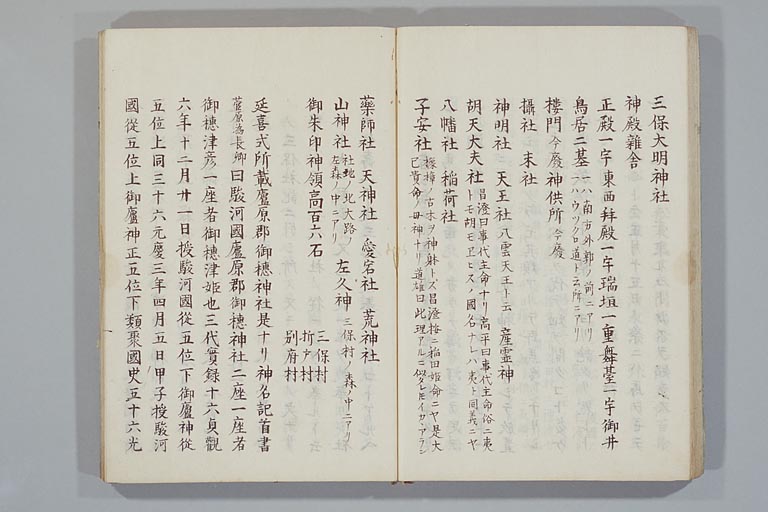 三保大明神社
神殿雜舎
正殿一宇東西拜殿一宇瑞垣一重舞臺一宇御井
鳥居二基一ハ南方外郭ノ前ニアリ
一ハウツクロ道ト云所ニアリ
樓門今廢神供所今廢
攝社 末社
神明社 天王社八雲天王ト云産霊神
胡天大夫社昌澄曰事代主命ナリ高平曰事代主命俗ニ夷
トモ胡モヱヒスノ國名ナレハ夷ト同義ニヤ
八幡社 稲荷社
子安社ノ古木ヲ神躰トズ昌澄按ニ稲田姫命ニヤ是大
已貴命ノ母神ナリ道雄曰此理アルニ似タレモイカヽアラン
藥師社 天神社 愛宕社 荒神社
山神社社地ノ北大路ノ
左森ノ中ニアリ左久神三保村ノ森ノ中ニアリ
御朱印神領高百六石三保村
折戸村
別府村
延喜式所載廬原郡御穂神社是ナリ神名記首書
菅原為長卿曰駿河國廬原郡御穂神社二座一座者
御穂津彦一座者御穂津姫也三代實録十六貞觀
六年十二月廿一日授駿河國從五位下御廬神從
五位上同三十六元慶三年四月五日甲子授駿河
國從五位上御廬神正五位下類聚國史五十六光